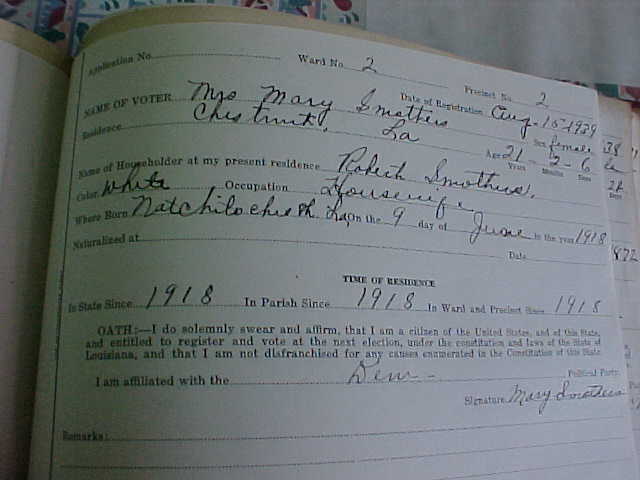 Application No. Ward No. 2 Precinct No. 2
Date of Registration Aug-15-1939
NAME OF VOTER Mrs Mary Smothers Sex female
Residence Chestnut, La Age 21 Years 2 Months 6 Days
Name of Householder at my present residence Robert Smothers.
Color White Occupation Housewife
Where Born Natchitoches Ph La, on the 9 day of June in the year 1918
Naturalized at Date
TIME OF RESIDENCE
In State Since 1918 In Parish Since 1918 In Ward and Precinct Since 1918
OATH:—I do solemnly swear and affirm, that I am a citizen of the United States, and of this State,
and entitled to register and vote at the next election, under the constitution and laws of the State of
Louisiana, and that I am not disfranchised for any causes enumerated in the Constitution of this State.
I am affiliated with the Dem- Political Party.
Signature Mary Smothers
Remarks: